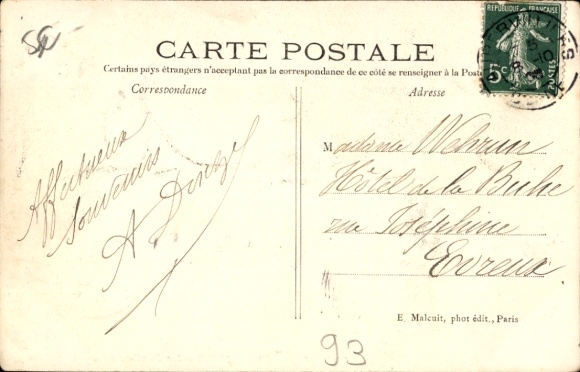 CARTE POSTALE
Certains pays étrangers n'acceptant pas la correspondance de ce côté se renseigner à la Poste
Correspondance
Adresse
RÉPUBLIQUE FRANÇAISE
5c
POSTES
Affectueux
Souvenirs
A
Madame Wehrun
Hôtel de la Biche
rue Joséphine
Evreux
E. Malcuit, phot édit., Paris
93